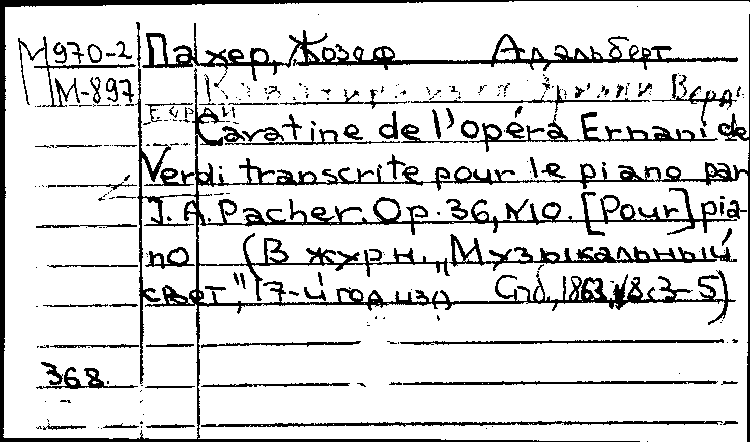 М970-2 Пахер, Жозеф Адальберт
М-897 Каватина из оп. Эрнани Верди
Cavatine de l'opéra Ernani de
Verdi transcrite pour le piano par
J. A. Pacher. Op. 36, N10. [Pour] pia-
no (В журн. „Музыкальный
свет", 17-й год изд Спб., 1863, с 3-5)
368.